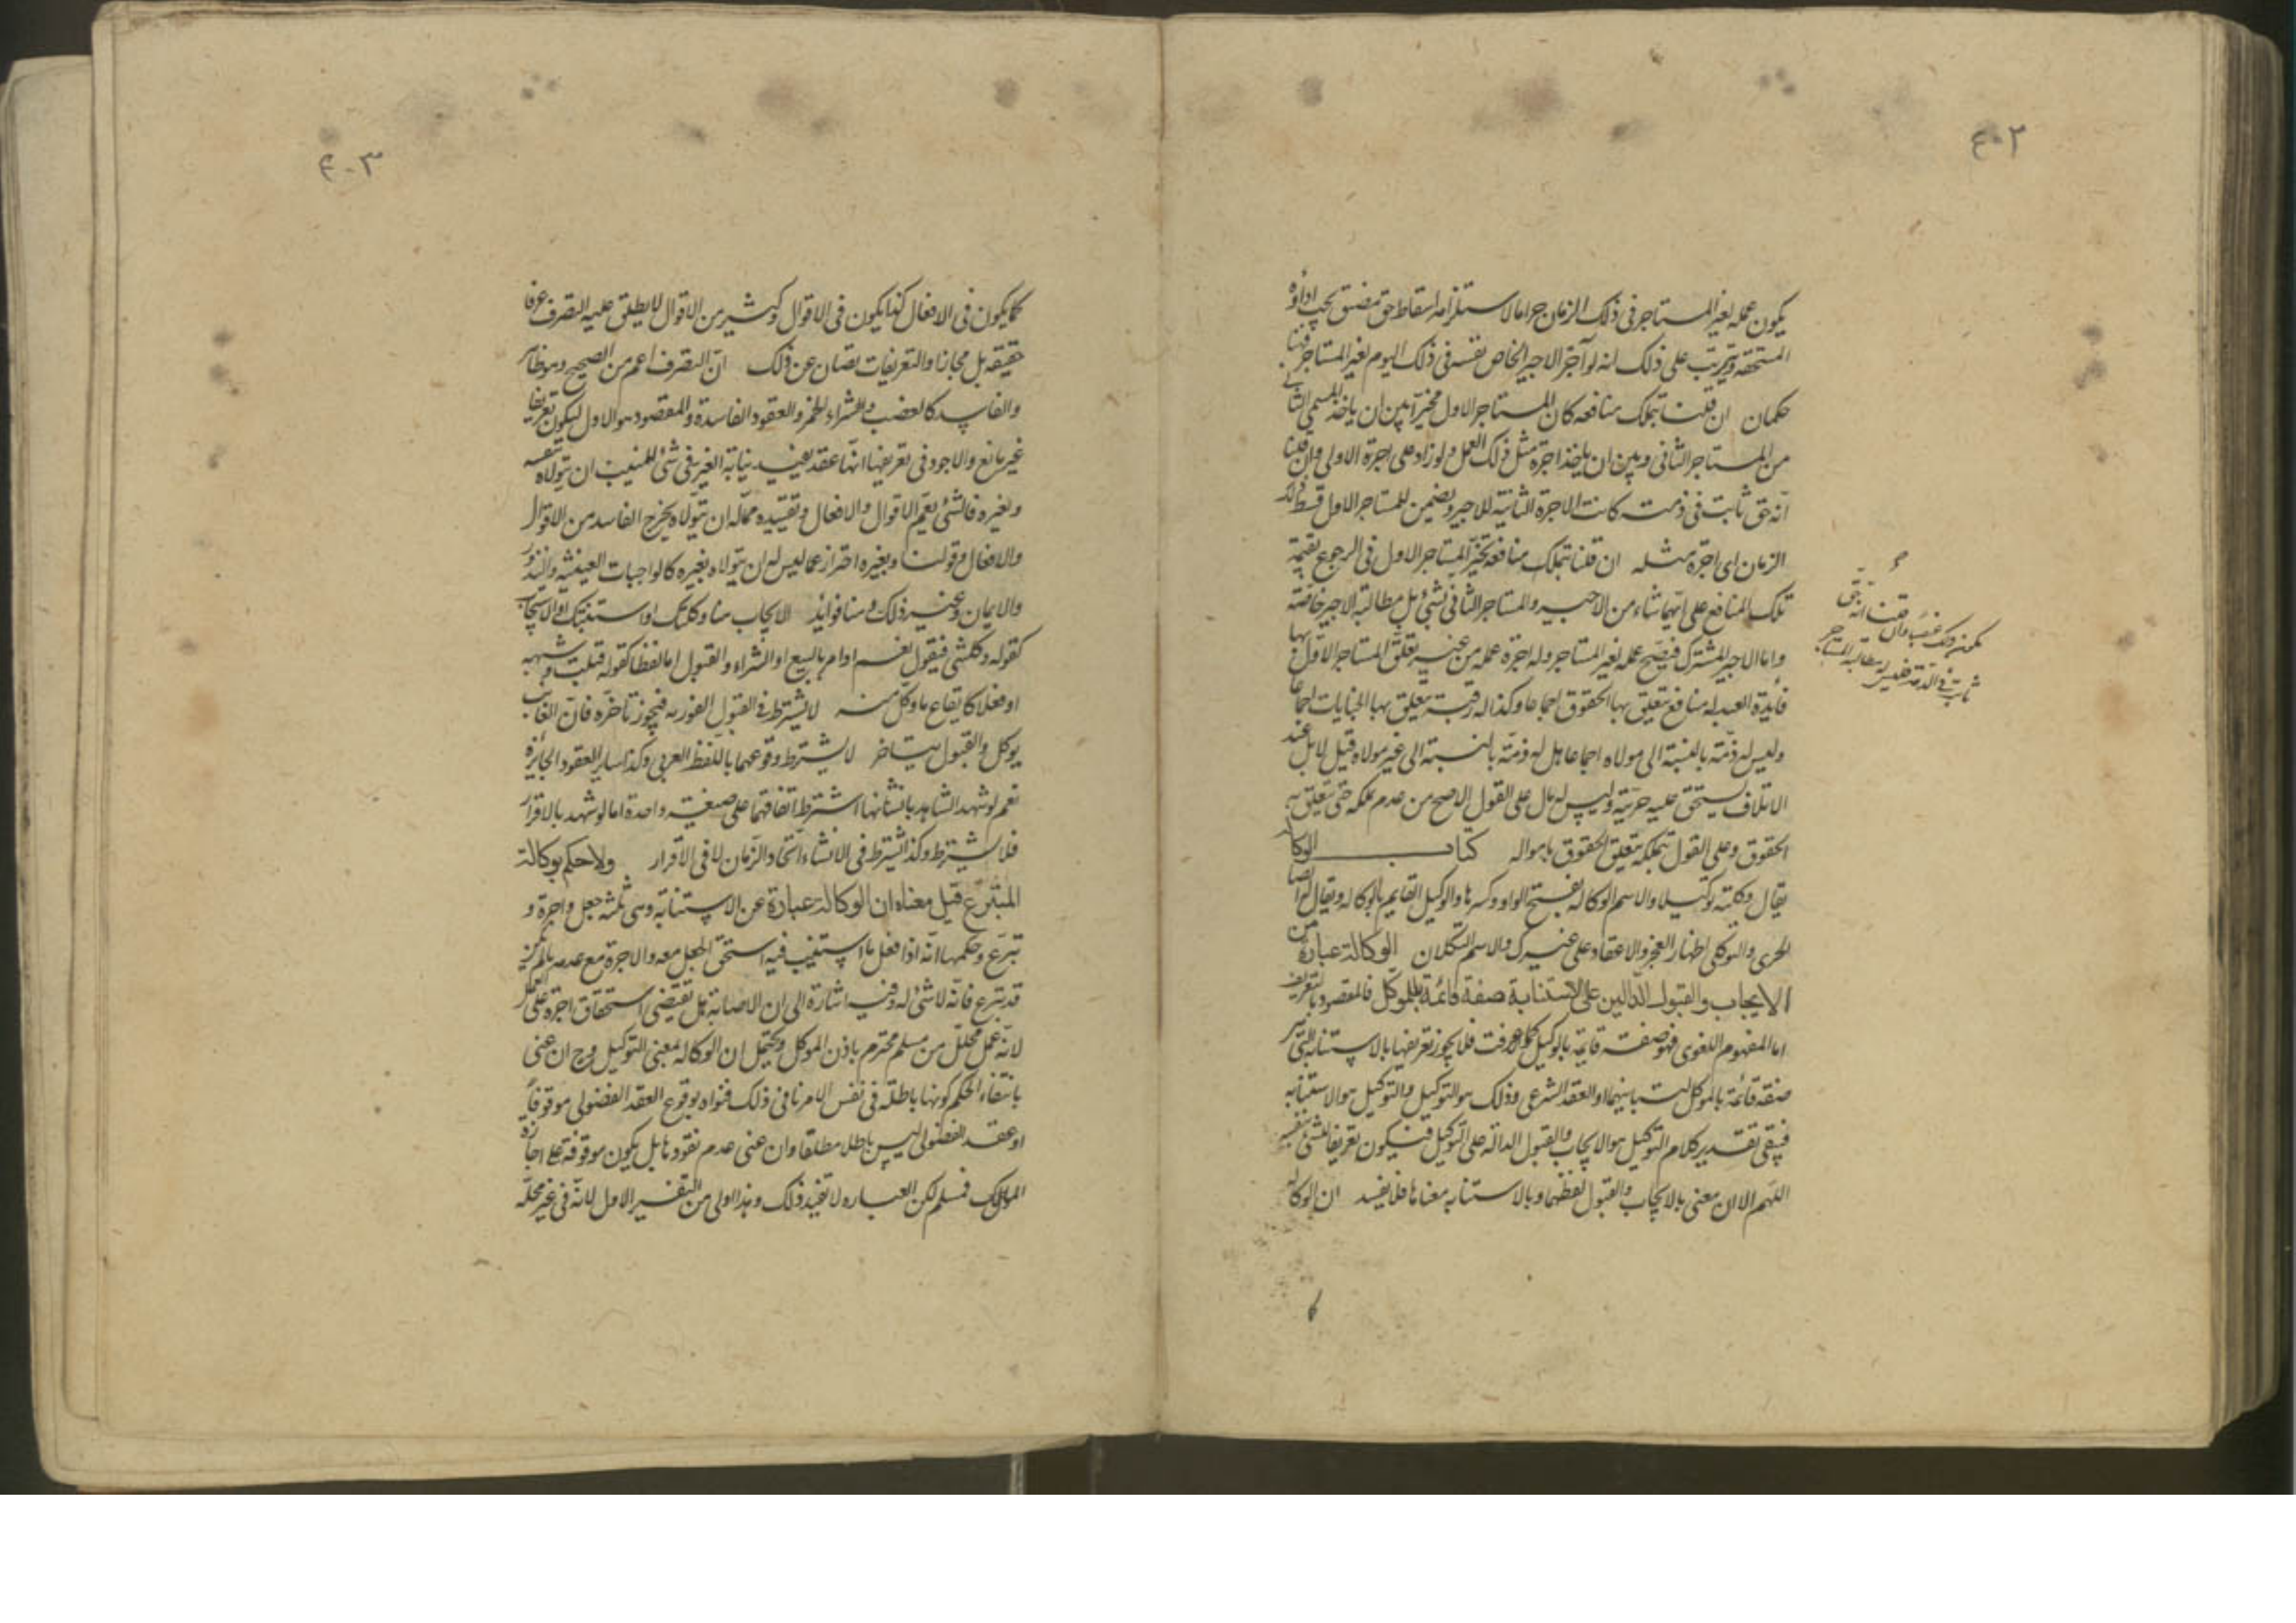 ٤٠٢
يكون عمله لغير المستاجر في ذلك الزمان حراما لاستلزامه اسقاط حق مضيق يجب اداؤه
المستحقه ويترتب على ذلك انه لو آجر الاجير الخاص نفسه في ذلك اليوم لغير المستاجر فهنا
حكمان ان قلنا بتملك منافعه كان للمستاجر الاول مخيرا بين ان ياخذ المسمى الثاني
من المستاجر الثاني وبين ان ياخذ اجرة مثل ذلك العمل ولو زاد على اجرة الاولى وان قلنا
انه حق ثابت في ذمته كانت الاجرة الثانية للاجير ويضمن للمستاجر الاول قسط ذلك
الزمان اى اجرة مثله ان قلنا بتملك منافعه تخير المستاجر الاول في الرجوع بقيمة
تلك المنافع على ايهما شاء من الاجير والمستاجر الثاني بشئ بل مطالبة الاجير خاصة
واما الاجير المشترك فيصح عمله لغير المستاجر وله اجرة عمله من غير تعلق المستاجر الاول بها
فائدة العبد له منافع تتعلق بها الحقوق اجماعا وكذا له رقبة تتعلق بها الجنايات اجماعا
وليس له ذمة بالنسبة الى مولاه اجماعا هل له ذمة بالنسبة الى غير مولاه قيل لا بل عند
الاتلاف يستحق عليه حريته وليس له مال على القول الاصح من عدم تملكه حتى تتعلق به
الحقوق وعلى القول بتملكه تتعلق الحقوق بامواله كتاب الوكالة
يقال وكلته توكيلا والاسم الوكاله بفتح الواو وكسرها والوكيل القايم بالوكاله ويقال ايضا
الجرى والتوكل اظهار العجز والاعتماد على غيرك والاسم التكلان الوكالة عبارة عن
الايجاب والقبول الدالين على الاستنابة صفة قائمة بالموكل فالمقصود بالتعريف
اما المفهوم اللغوى فهو صفة قايمة بالوكيل كما عرفت فلا يجوز تعريفها بالاستنابة التى هى
صفة قائمة بالموكل لتباينهما او العقد الشرعى وذلك هو التوكيل والتوكيل هو الاستنابه
فيبقى تقدير كلام التوكيل هو الايجاب والقبول الدالة على التوكيل فيكون تعريفا للشئ بنفسه
اللهم الا ان معنى بالايجاب والقبول لفظهما وبالاستنابه معناها فلا يفسد ان الوكاله
يمكن ذلك غصبا وان قلنا انه حق
ثابت في الذمة فليس له مطالبة المستاجر
٤٠٣
كما يكون في الافعال كذا يكون في الاقوال وكثير من الاقوال لا يطلق عليه التصرف عرفا
حقيقه بل مجازا والتعريفات تصان عن ذلك ان التصرف اعم من الصحيح وهو ظاهر
والفاسد كالغصب والشراء للخمر والعقود الفاسدة والمقصود هو الاول ليكون تعريفا
غير مانع والاجود في تعريفها انها عقد يفيد نيابة الغير في شئ للمنيب ان يتولاه بنفسه
وبغيره فالشئ يعم الاقوال والافعال وتقييده مما له ان يتولاه يخرج الفاسد من الاقوال
والافعال وقولنا وبغيره احتراز عما ليس له ان يتولاه بغيره كالواجبات العينيه والنذور
والايمان وغير ذلك وهنا فوائد الايجاب هنا وكلتك او استنبتك او الاستيجاب
كقوله وكلتنى فيقول نعم او امر بالبيع او الشراء والقبول اما لفظا كقوله قبلت وشبهه
او فعلا كايقاع ما وكل فيه لا يشترط في القبول الفوريه فيجوز تاخره فان الغائب
يوكل والقبول يتاخر لا يشترط وقوعهما باللفظ العربى وكذا ساير العقود الجايزة
نعم لو شهد الشاهد بانشائها اشترط اتفاقهما على صيغة واحدة اما لو شهد بالاقرار
فلا يشترط وكذا يشترط في الانشاء اتحاد الزمان لا في الاقرار ولا حكم بوكالة
المتبرع قيل معناه ان الوكالة عبارة عن الاستنابة وهى ثلثة جعل واجرة و
تبرع وحكمها انه اذا فعل ما استنيب فيه استحق الجعل معه والاجرة مع عدمه ما لم يكن
قد تبرع فانه لا شئ له وفيه اشارة الى ان الاصابة هل تقتضى استحقاق اجرة على
لانه عمل محلل من مسلم محترم باذن الموكل ويحتمل ان الوكاله بمعنى التوكيل وح ان عنى
بانتفاء الحكم كونها باطلة في نفس الامر نافى ذلك فتواه بوقوع العقد الفضولى موقوفا
او عقد الفضولى ليس باطلا مطلقا وان عنى عدم نفوذها بل يكون موقوفة على اجازة
المالك فمسلم لكن العباره لا تفيد ذلك وهذا اولى من التفسير الاول لانه في غير محله